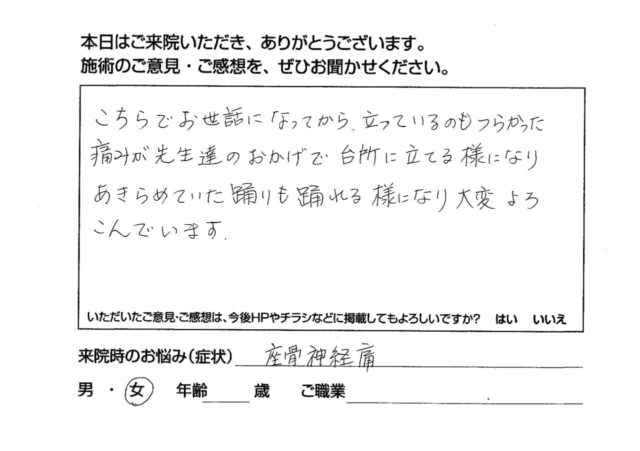 本日はご来院いただき、ありがとうございます。
施術のご意見・ご感想を、ぜひお聞かせください。
こちらでお世話になってから、立っているのもつらかった
痛みが先生達のおかげで台所に立てる様になり
あきらめていた踊りも踊れる様になり大変よろ
こんでいます.
いただいたご意見・ご感想は、今後HPやチラシなどに掲載してもよろしいですか？ はい いいえ
来院時のお悩み（症状） 座骨神経痛
男 ・ 女 年齢 歳 ご職業